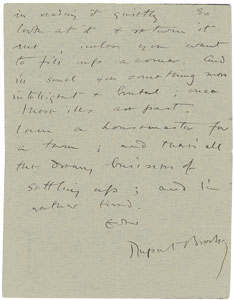 in reading it quickly. So
look at it & return it
out, unless you want
to fill up a corner. And
I'll send you something more
intelligent &
as part.
I am a housemaster for
a term; and there's all
the dreary business of
settling up; and I'm
rather tired.
Ever
Rupert Brooke